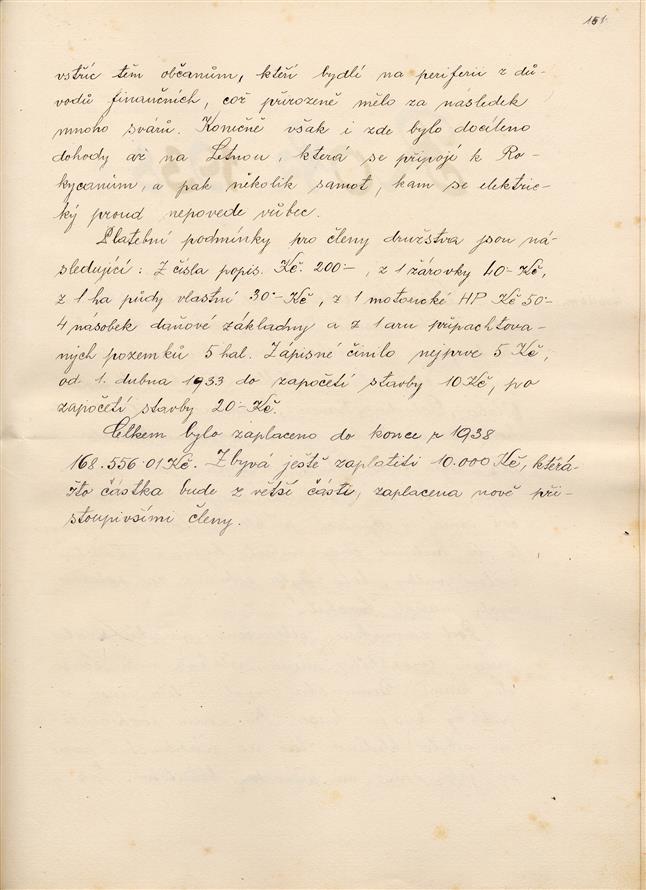 151.
vstříc těm občanům, kteří bydlí na periferii z dů-
vodů finančních, což přirozeně mělo za následek
mnoho svárů. Konečně však i zde bylo docíleno
dohody až na Letnou, která se připojí k Ro-
kycanům, a pak několik samot, kam se elektric-
ký proud nepovede vůbec.
Platební podmínky pro členy družstva jsou ná-
sledující: Z čísla popis. Kč. 200·-, z 1 žárovky 40·- Kč,
z 1 ha půdy vlastní 30·- Kč, z 1 motorické HP Kč 50·-
4 násobek daňové základny a z 1 aru připachtova-
ných pozemků 5 hal. Zápisné činilo nejprve 5 Kč,
od 1. dubna 1933 do započetí stavby 10 Kč, po
započetí stavby 20·- Kč.
Celkem bylo zaplaceno do konce r 1938
168.556·01 Kč. Zbývá ještě zaplatiti 10.000 Kč, která-
žto částka bude z větší části, zaplacena nově při-
stoupivsími členy.